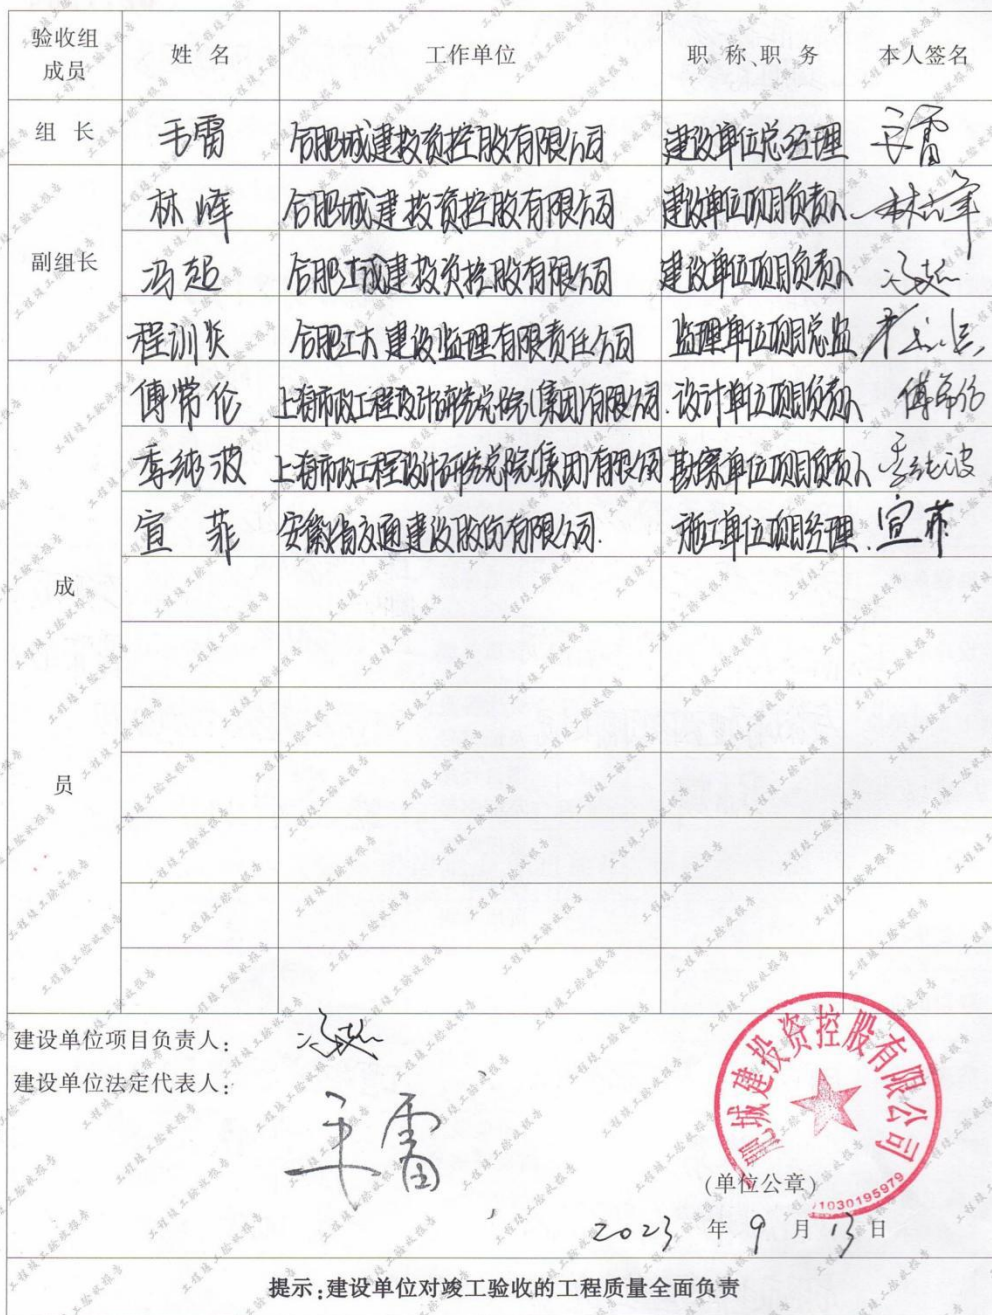 验收组成员 姓 名 工作单位 职 称、职 务 本人签名
组 长 毛雷 合肥城建投资控股有限公司 建设单位总经理 毛雷
副组长
林峰 合肥城建投资控股有限公司 建设单位项目负责人
冯超 合肥城建投资控股有限公司 建设单位项目负责人 冯超
程训 合肥工大建设监理有限责任公司 监理单位项目总监
成 员
傅常伦 上海市政工程设计研究总院(集团)有限公司. 设计单位项目负责人 傅常伦
季纯波 上海市政工程设计研究总院(集团)有限公司 勘察单位项目负责人 季纯波
宣菲 安徽省交通建设股份有限公司. 施工单位项目经理. 宣菲
建设单位项目负责人: 冯超
建设单位法定代表人:
毛雷
肥城建投资控股有限公司
1030195979
(单位公章)
2023 年 9 月 13 日
提示:建设单位对竣工验收的工程质量全面负责